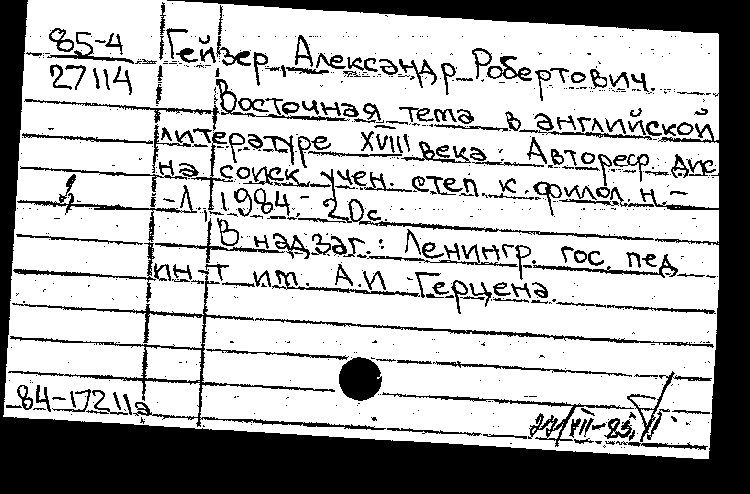 85-4
27114
Гейзер, Александр Робертович.
Восточная тема в английской
литературе XVIII века: Автореф. дис
на соиск учен. степ к. филол. н. –
–Л., 1984. – 20с.
В надзаг.: Ленингр. гос. пед
ин-т им. А.И Герцена.
84-17211а